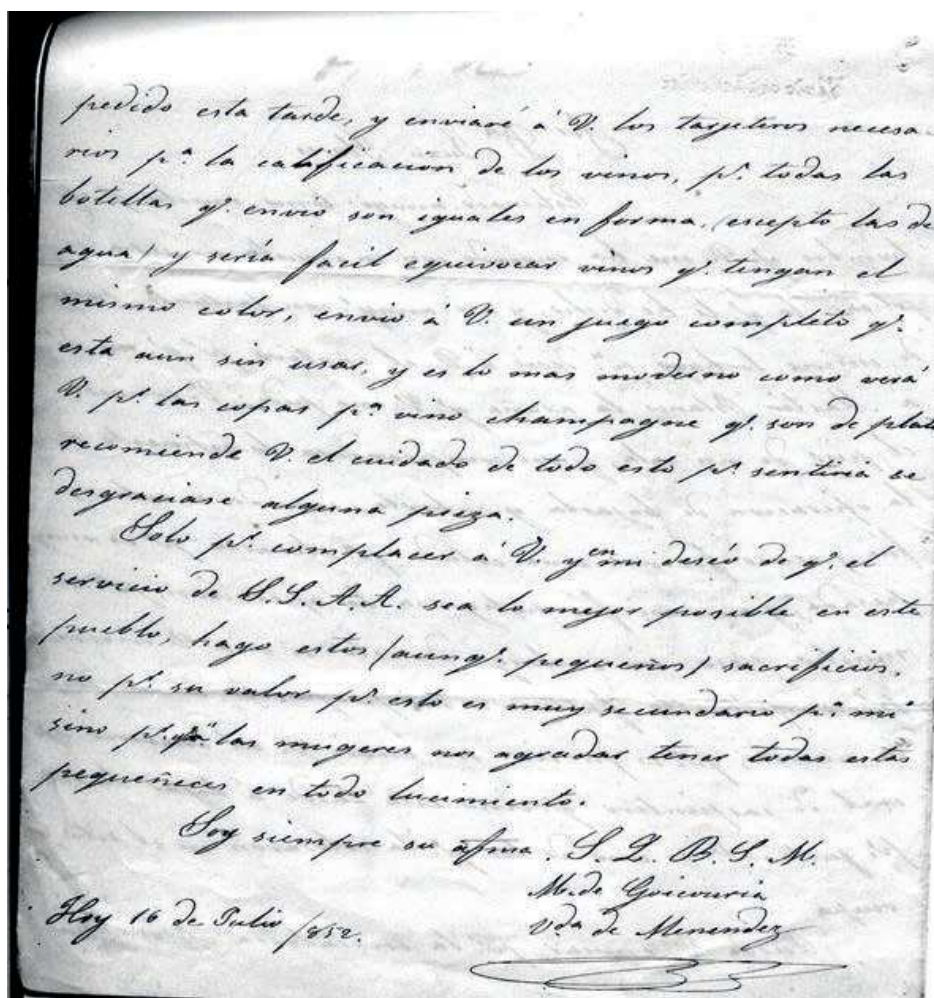 pedido esta tarde, y enviaré á V. los targeteros necesa
rios pª. la calificacion de los vinos, pˢ. todas las
botellas qᵉ. envio son iguales en forma, (escepto las de
agua) y sería facil equivocar vinos qᵉ. tengan el
mismo color, envio á V. un juego completo qᵉ.
esta aun sin usar, y es lo mas moderno como verá
V. pʳ. las copas pª. vino champagne qᵉ. son de plata
recomiende V. el cuidado de todo esto pˢ. sentiria se
desgraciase alguna pieza.
Solo pʳ. complacer á V. y en mi deséo de qᵉ. el
servicio de S.S.A.A. sea lo mejor posible en este
pueblo, hago estos (aunqᵉ. pequeños) sacrificios,
no pʳ. su valor pˢ. esto es muy secundario pª. mi
sino pʳ. qᵉ. á las mugeres nos agradar tener todas estas
pequeñeces en todo lucimiento.
Soy siempre su afma. S. Q. B. S. M.
M. de Goicouria
Hoy 16 de Julio /852.
Vda de Menendez